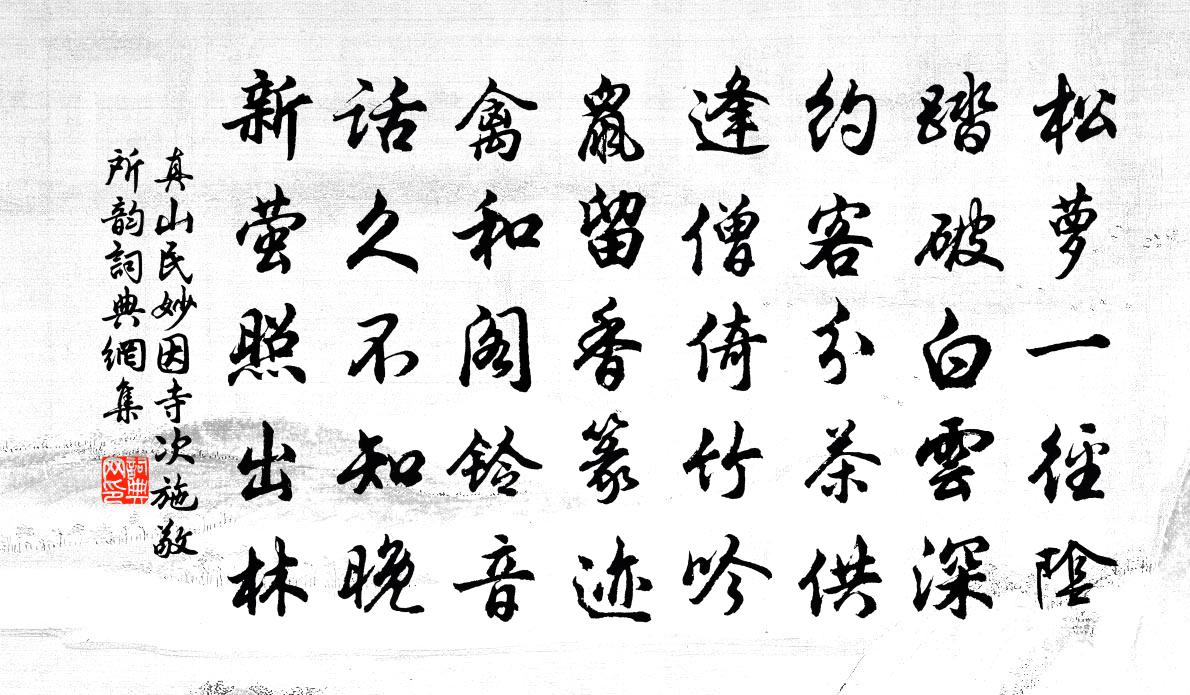 松萝一径阴
踏破白雲深
約客分茶供
逢僧倚竹吟
鼠留香篆迹
禽和阁鈴音
话久不知晚
新萤照出林
真山民妙因寺次施敬
所韵詞典網集
詞典網印